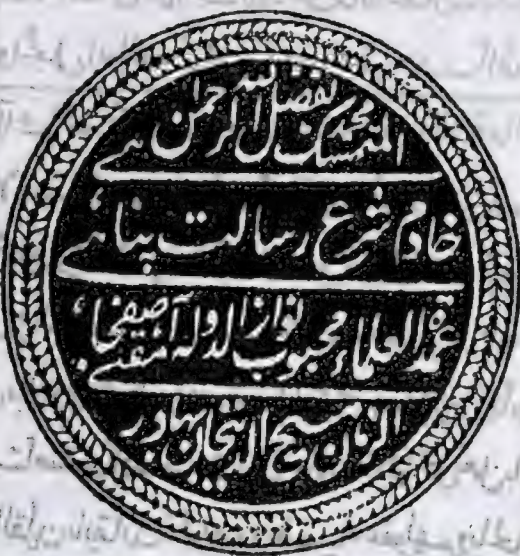 المتمسك بفضل الرحمن محمد
خادم شرع رسالت پناہی
عمدة العلماء محبوب نواز الدولہ مفتی
الزمان مسیح الدین خان بہادر